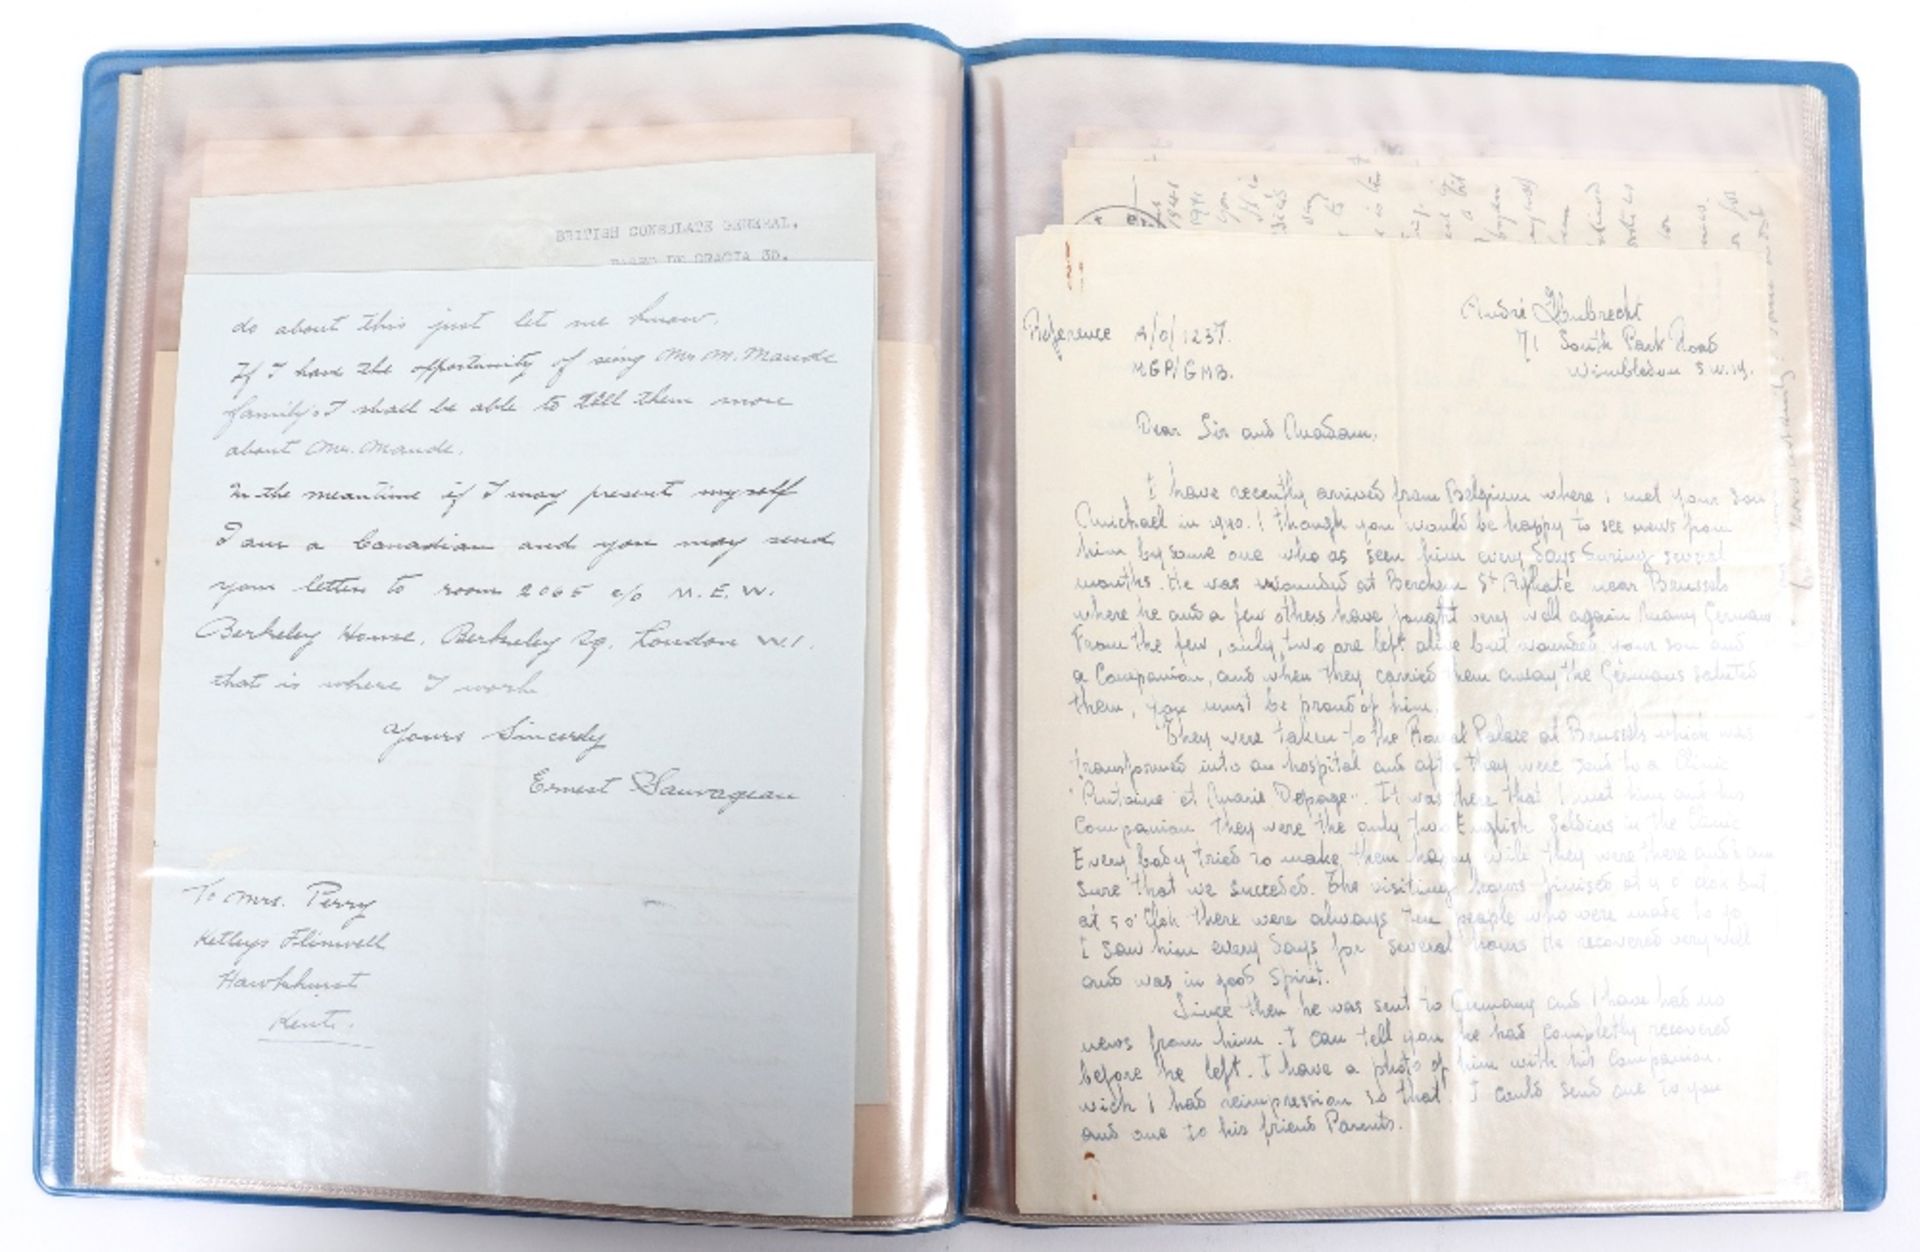 BRITISH CONSULATE GENERAL,
PASEO DE GRACIA 35.
do about this just let me know.
If I have the opportunity of seing Mr M. Maude
family's I shall be able to tell them more
about Mr. Maude.
In the meantime if I may present myself
I am a Canadian and you may send
your letter to room 2065 c/o M.E.W.
Berkeley House, Berkeley Sq. London W.1.
that is where I work.
Yours Sincerly
Ernest Sauvageau
To Mrs. Perry
Ketleys Flimwell
Hawkhurst
Kent.
1941
1941
You
André
71 South Park Road
Wimbledon S.W.19.
Reference
MGP/GMB.
Dear Sir and Madam,
I have recently arrived from Belgium where I met your son
Michael in 1940. I though you would be happy to see news from
him by some one who as seen him every days during several
months. He was wounded at Berchem St Aghate near Brussels
where he and a few others have fought very well again many German
From the few, only, two are left alive but wounded, your son and
a Companion, and when they carried them away the Germans saluted
them, you must be proud of him.
They were taken to the Royal Palace at Brussels which was
transformed into an hospital and after they were send to a Clinic
"Antoine et Marie Depage". It was there that I met him and his
Companion they were the only two English Soldiers in the Clinic
Every body tried to make them happy while they were there and I am
sure that we succeded. The visiting hours finised at 4 o clok but
at 5 o'clok there were always ten people who were made to go
I saw him every days for several hours He recovered very well
and was in good Spirit.
Since then he was sent to Germany and I have had no
news from him. I can tell you he had completly recovered
before he left. I have a photo of him with his Companion.
wich I had reimpression so that I could send one to you
and one to his friend Parents.